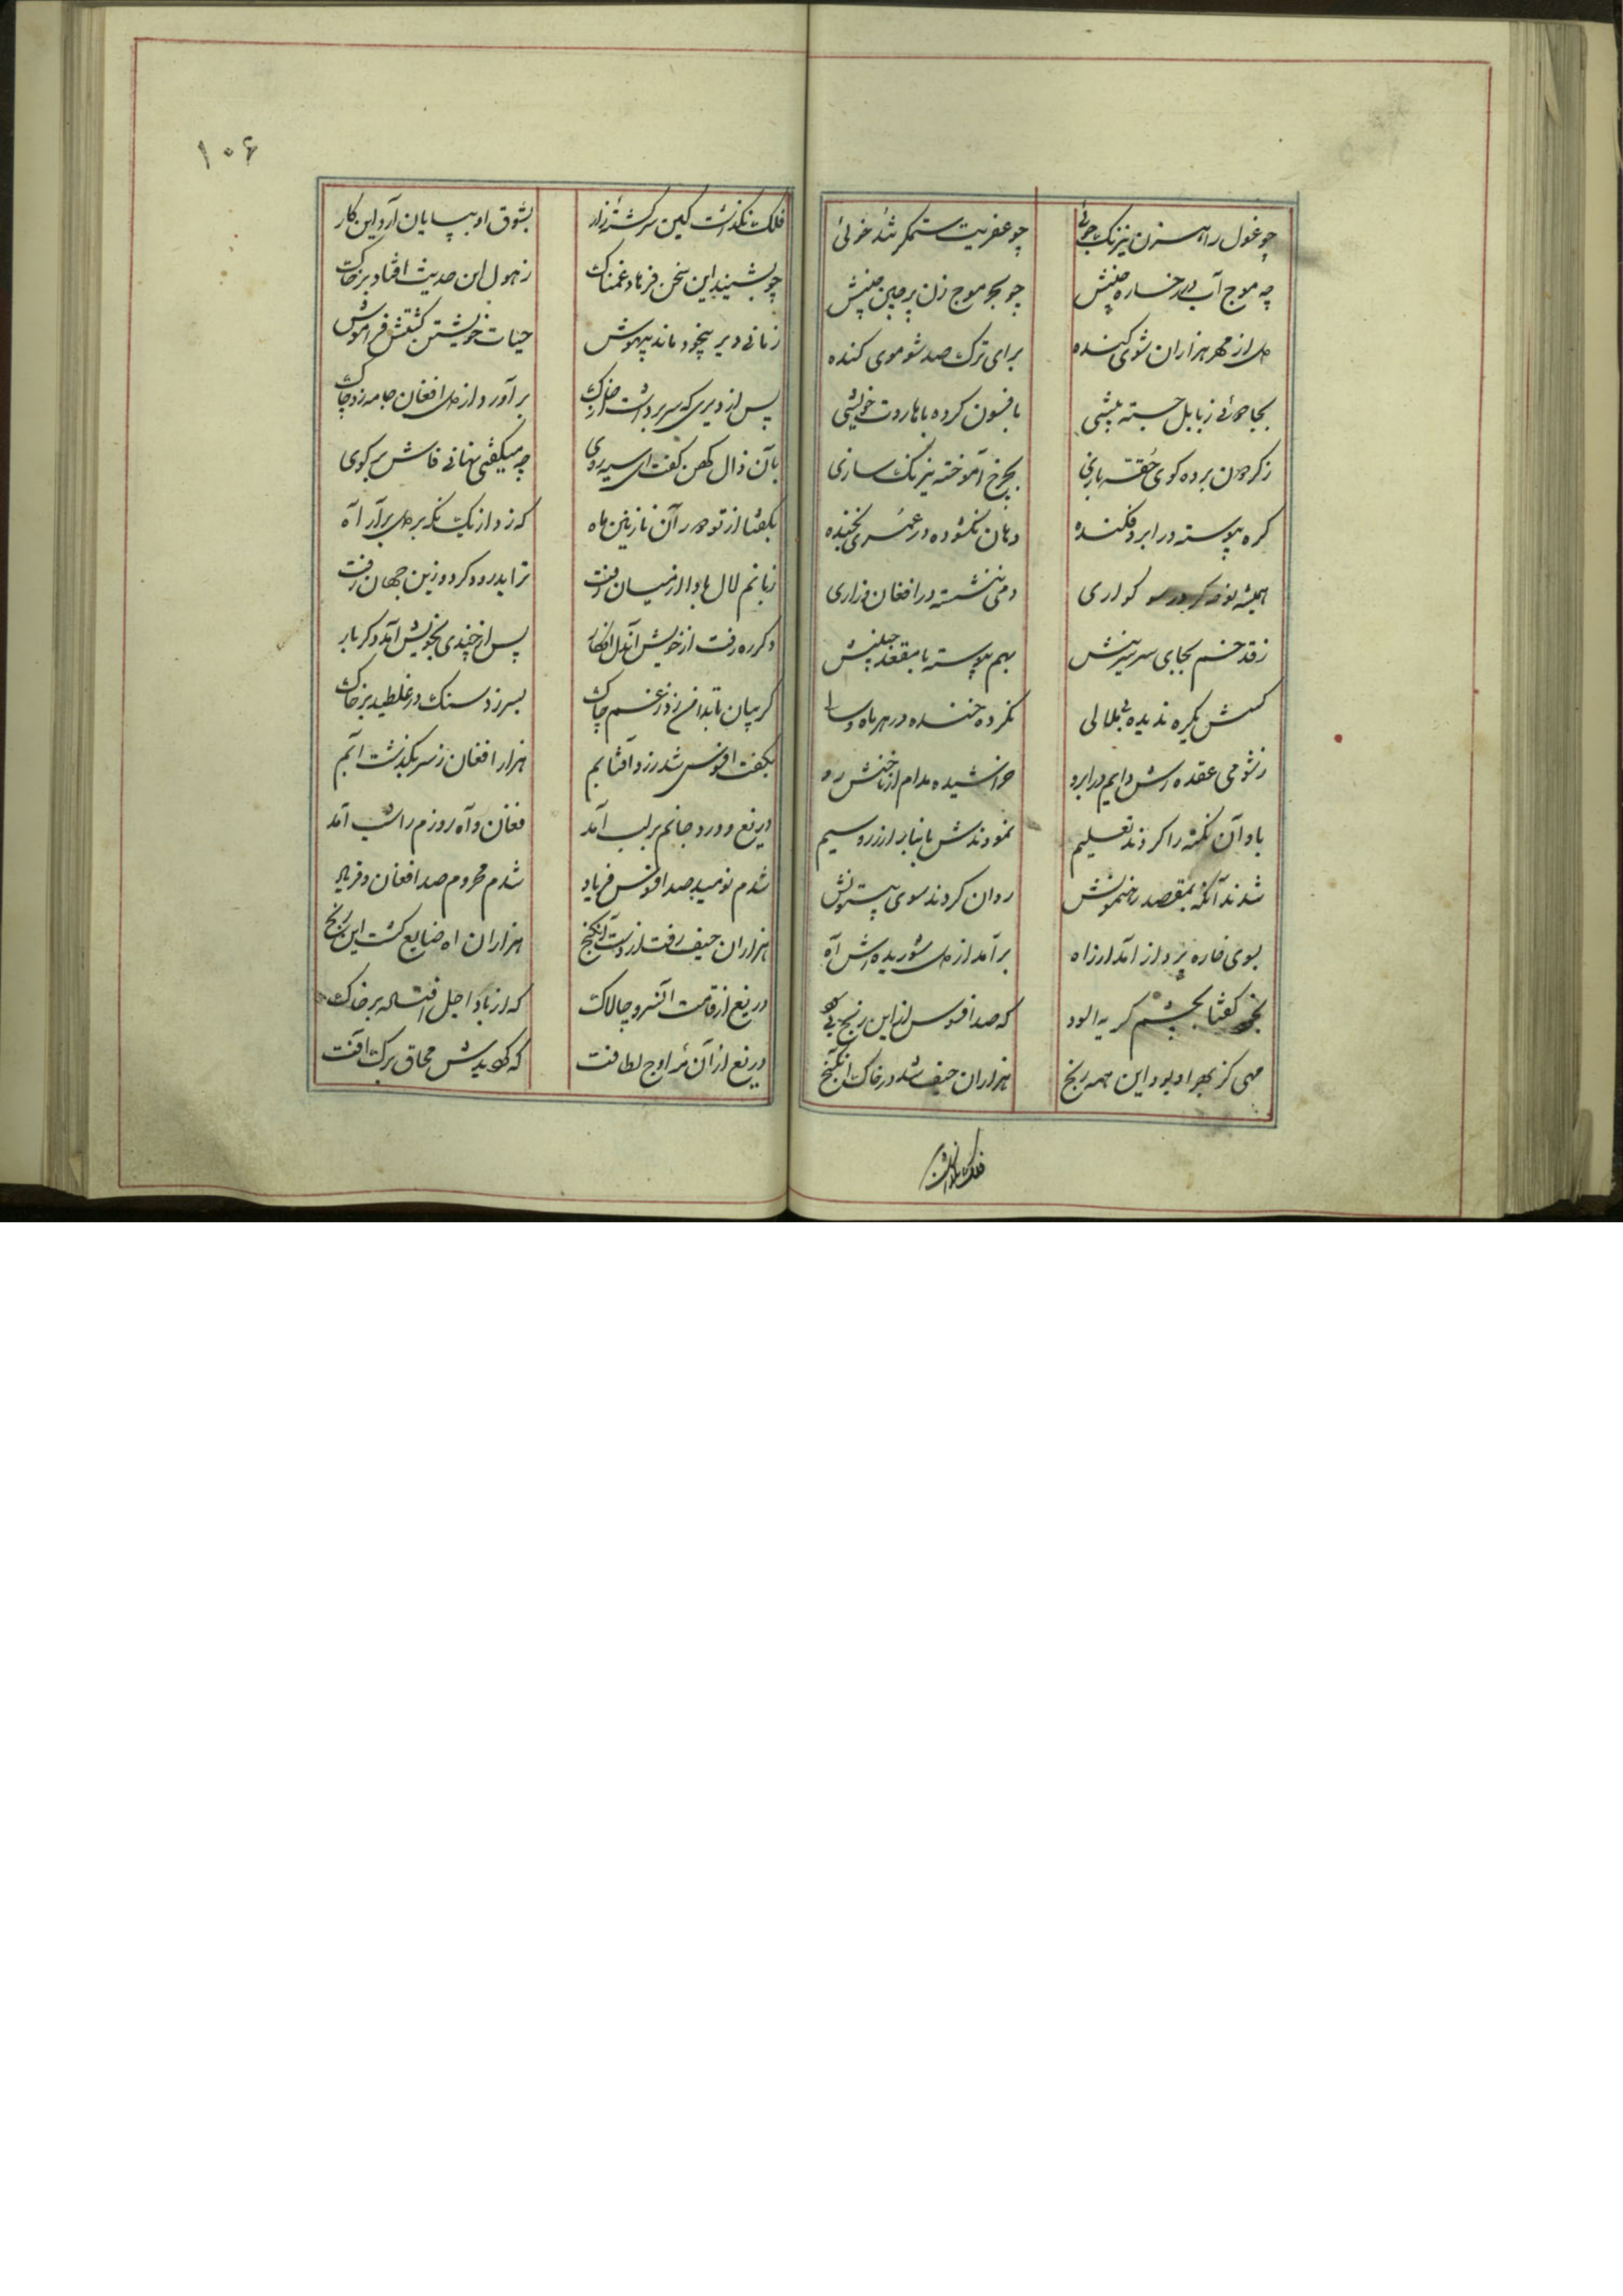 چو غول راهزن نیرنک جوئی چو عفریت ستمگر تند خوئی
چه موج آب در رخساره چینش چو بحر موج زن پر چین جبینش
دل از مهر هزاران شوی کنده برای ترک صد شو موی کنده
بجادوئی ز بابل جسته پیشی بافسون کرده با هاروت خویشی
ز کردون برده کوی حقه بازی بچرخ آموخته نیرنک سازی
کره پیوسته در ابرو فکنده دهان نکشوده در عمری بخنده
همیشه کواری دمی ننشسته در افغان و زاری
ز قد خم بجای سر سرینش بهم پیوسته با مقعد جبینش
کسش یکره ندیده بی ملالی نکرده خنده در هر ماه و سالی
ز شومی عقده‌اش دایم در ابرو خراشیده مدام از ناخنش رو
باو آن نکته را کردند تعلیم نمودندش بانبار از زر و سیم
شدند آنکه بمقصد رهنمونش روان کردند سوی بیستونش
بسوی خاره پرداز آمد از راه بر آمد از دل شوریده‌اش آه
بخود کفتا بچشم کریه الود که صد افسوس از این رنج بی
مهی کز بهر او بود این همه رنج هزاران حیف شد در خاک آنکنج
فلک نگذاشت
۱۰۶
فلک نکذاشت کین سرکشته زار بشوق او بپایان آرد این کار
چو بشنید این سخن فرهاد غمناک ز هول این حدیث افتاد بر خاک
زمانی دیر بیخود ماند بیهوش حیات خویشتن کشتش فراموش
پس از دیری که سر برداشت از خاک بر آورد از دل افغان جامه زد چاک
بآن زال کهن کفت ای سیه روی چه میکفتی نهانی فاش بر کوی
بکفتا از تو دور آن نازنین ماه که زد از یک نکه بر دل برآر آه
زبانم لال بادا از میان رفت ترا بدرود کرد و زین جهان رفت
دکر ره رفت از خویش آندل افکار پس از چندی بخویش آمد دکر بار
کریبان تا بدامن زد ز غم چاک بسر زد سنک و در غلطید بر خاک
بکفت افسوس شد زرد آفتابم هزار افغان ز سر بکذشت آبم
دریغ و درد جانم بر لب آمد فغان و آه روزم را شب آمد
شدم نومید صد افسوس فریاد شدم محروم صد افغان و فریاد
هزاران حیف رفت از دست آنکنج هزاران اه ضایع کشت این رنج
دریغ از قامت آنسرو چالاک که از باد اجل افتاد بر خاک
دریغ از آن مه اوج لطافت که محاق مرک آفت